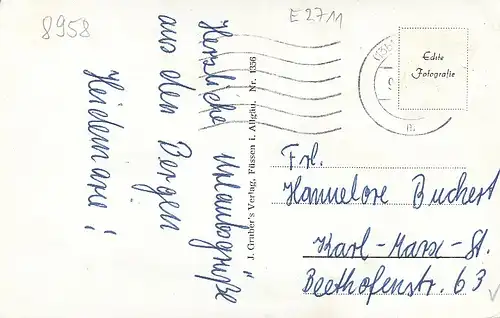 8958
E 2711
Herzliche Urlaubsgrüße
aus den Bergen
Heidemarie!
J. Gruber's Verlag, Füssen i. Allgäu. Nr. 1356
Echte
Fotografie
Frl.
Hannelore Buchert
Karl-Marx-St.
Beethofenstr. 63